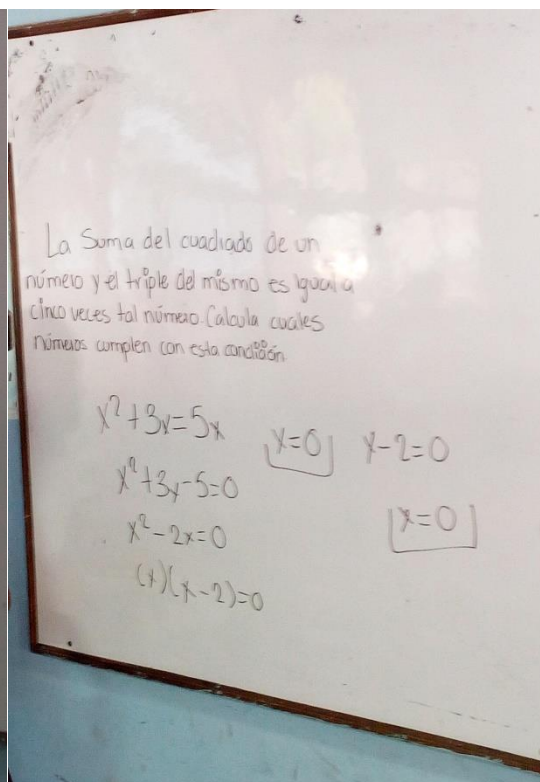 La Suma del cuadrado de un
número y el triple del mismo es igual a
cinco veces tal número. Calcula cuales
números cumplen con esta condición
x² + 3x = 5x
x² + 3x - 5 = 0
x² - 2x = 0
(x)(x - 2) = 0
x = 0
x - 2 = 0
x = 0